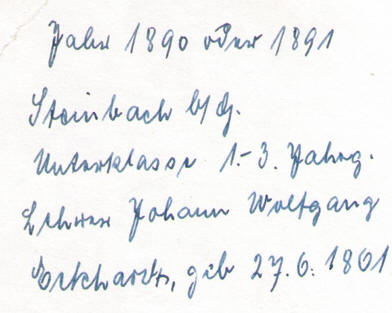 Jahr 1890 oder 1891
Steinbach b/
Unterklasse 1.-3. Jahrg.
Lehrer Johann Wolfgang
Eckhardt, geb 27.6.1861